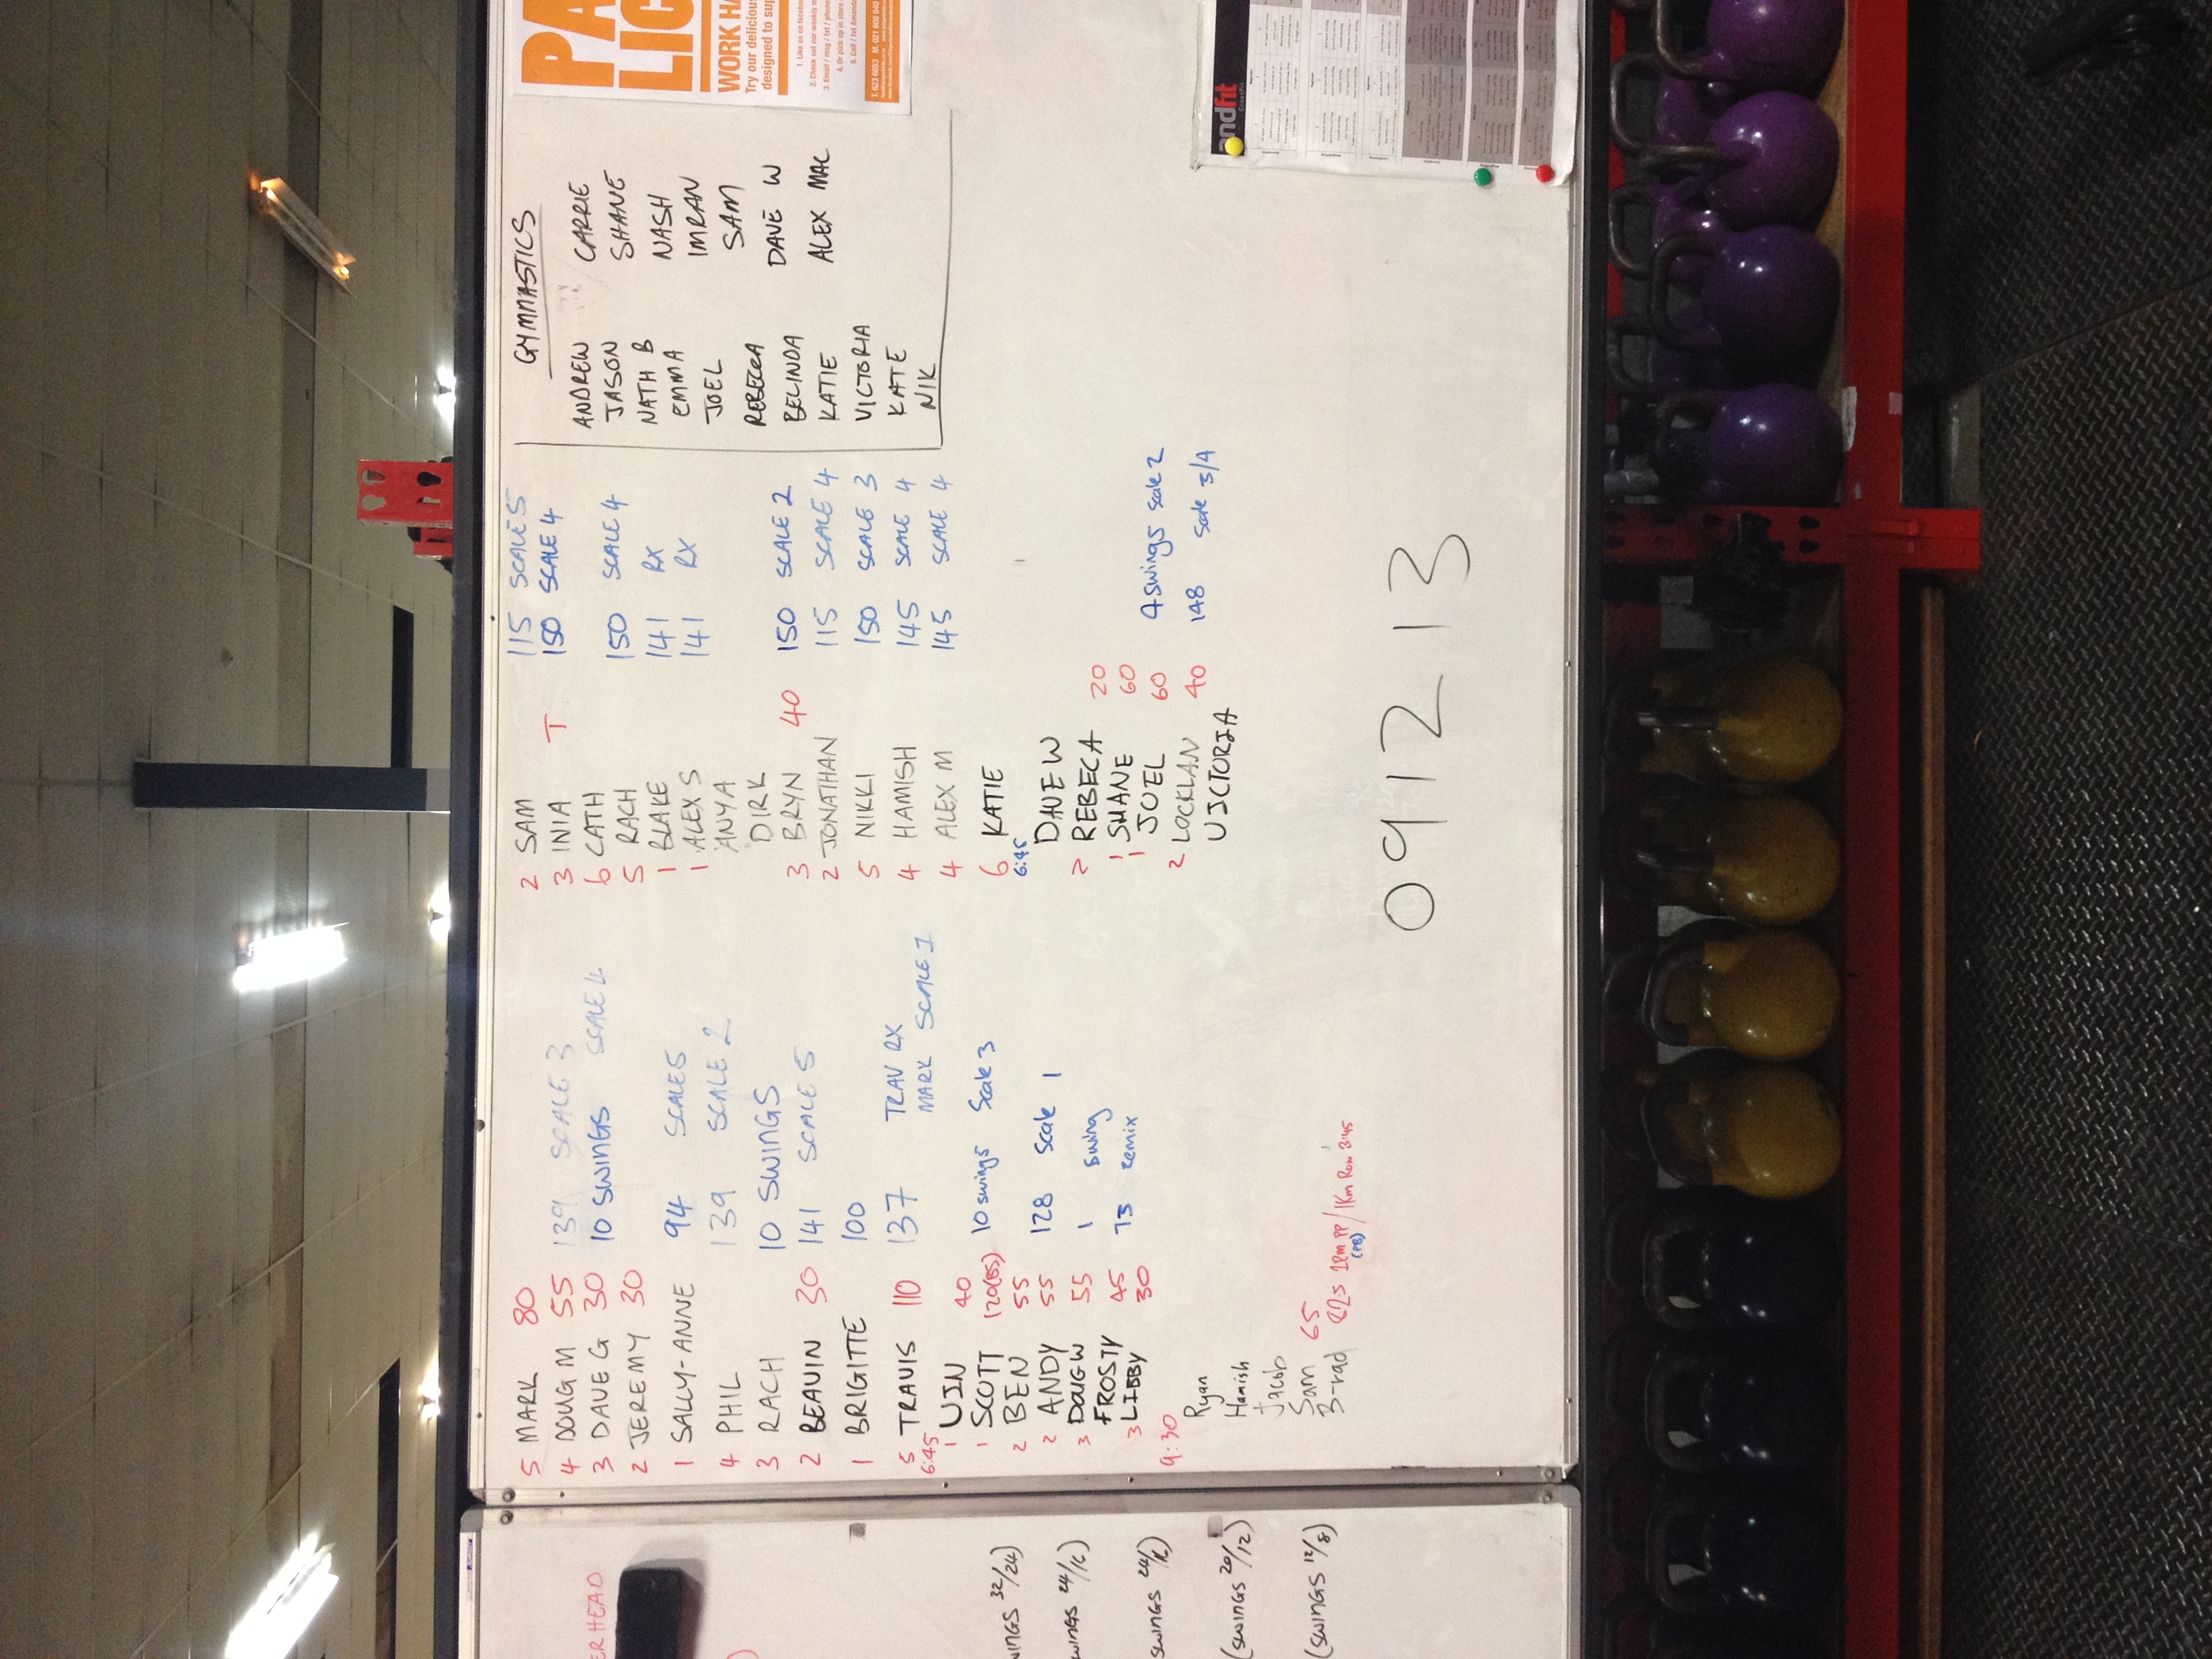 ERHEAD
)
WINGS 32/24)
SWINGS 24/16)
SWINGS 24/16)
(SWINGS 20/12)
(SWINGS 12/8)
5 MARK 80
4 DOUG M 55 139 SCALE 3
3 DAVE G 30 10 SWINGS SCALE 4
2 JEREMY 30
1 SALLY-ANNE 94 SCALE 5
4 PHIL 139 SCALE 2
3 RACH 10 SWINGS
2 BEAVIN 30 141 SCALE 5
1 BRIGITTE 100
5 TRAVIS 110 137 TRAV RX
6:45 MARK SCALE 1
1 VIN 40
1 SCOTT 120(BS) 10 swings Scale 3
2 BEN 55
2 ANDY 55 128 Scale 1
3 DOUG W 55 1 swing
FROSTY 45 73 remix
3 LIBBY 30
9:30
Ryan
Hamish
Jacob
Sam 65
B-rad 1RM PP / 1Km Row 3:45
(PB)
2 SAM 115 SCALE 5
3 INIA T 150 SCALE 4
6 CATH 150 SCALE 4
5 RACH 141 RX
1 BLAKE 141 RX
1 ALEX S
ANYA
DIRK
3 BRYN 40 150 SCALE 2
2 JONATHAN 115 SCALE 4
5 NIKKI 150 SCALE 3
4 HAMISH 145 SCALE 4
4 ALEX M 145 SCALE 4
6 KATIE
6:45
DAVE W
2 REBECA 20
1 SHANE 60
1 JOEL 60 4 swings Scale 2
2 LOCKLAN 40 148 Scale 3/4
VICTORIA
GYMNASTICS
ANDREW CARRIE
JASON SHANE
NATH B NASH
EMMA IMRAN
JOEL SAM
REBECCA DAVE W
BELINDA ALEX MAC
KATIE
VICTORIA
KATE
NIK
091213
PA
LIG
WORK HA
Try our delicious
designed to sup
1. Like us on facebo
2. Check out our weekly m
3. Email / msg / txt / phone
4. Or pick up in store
5. Call / txt Amanda
T. 623 6653 M. 021 608 640
andfit
CrossFit